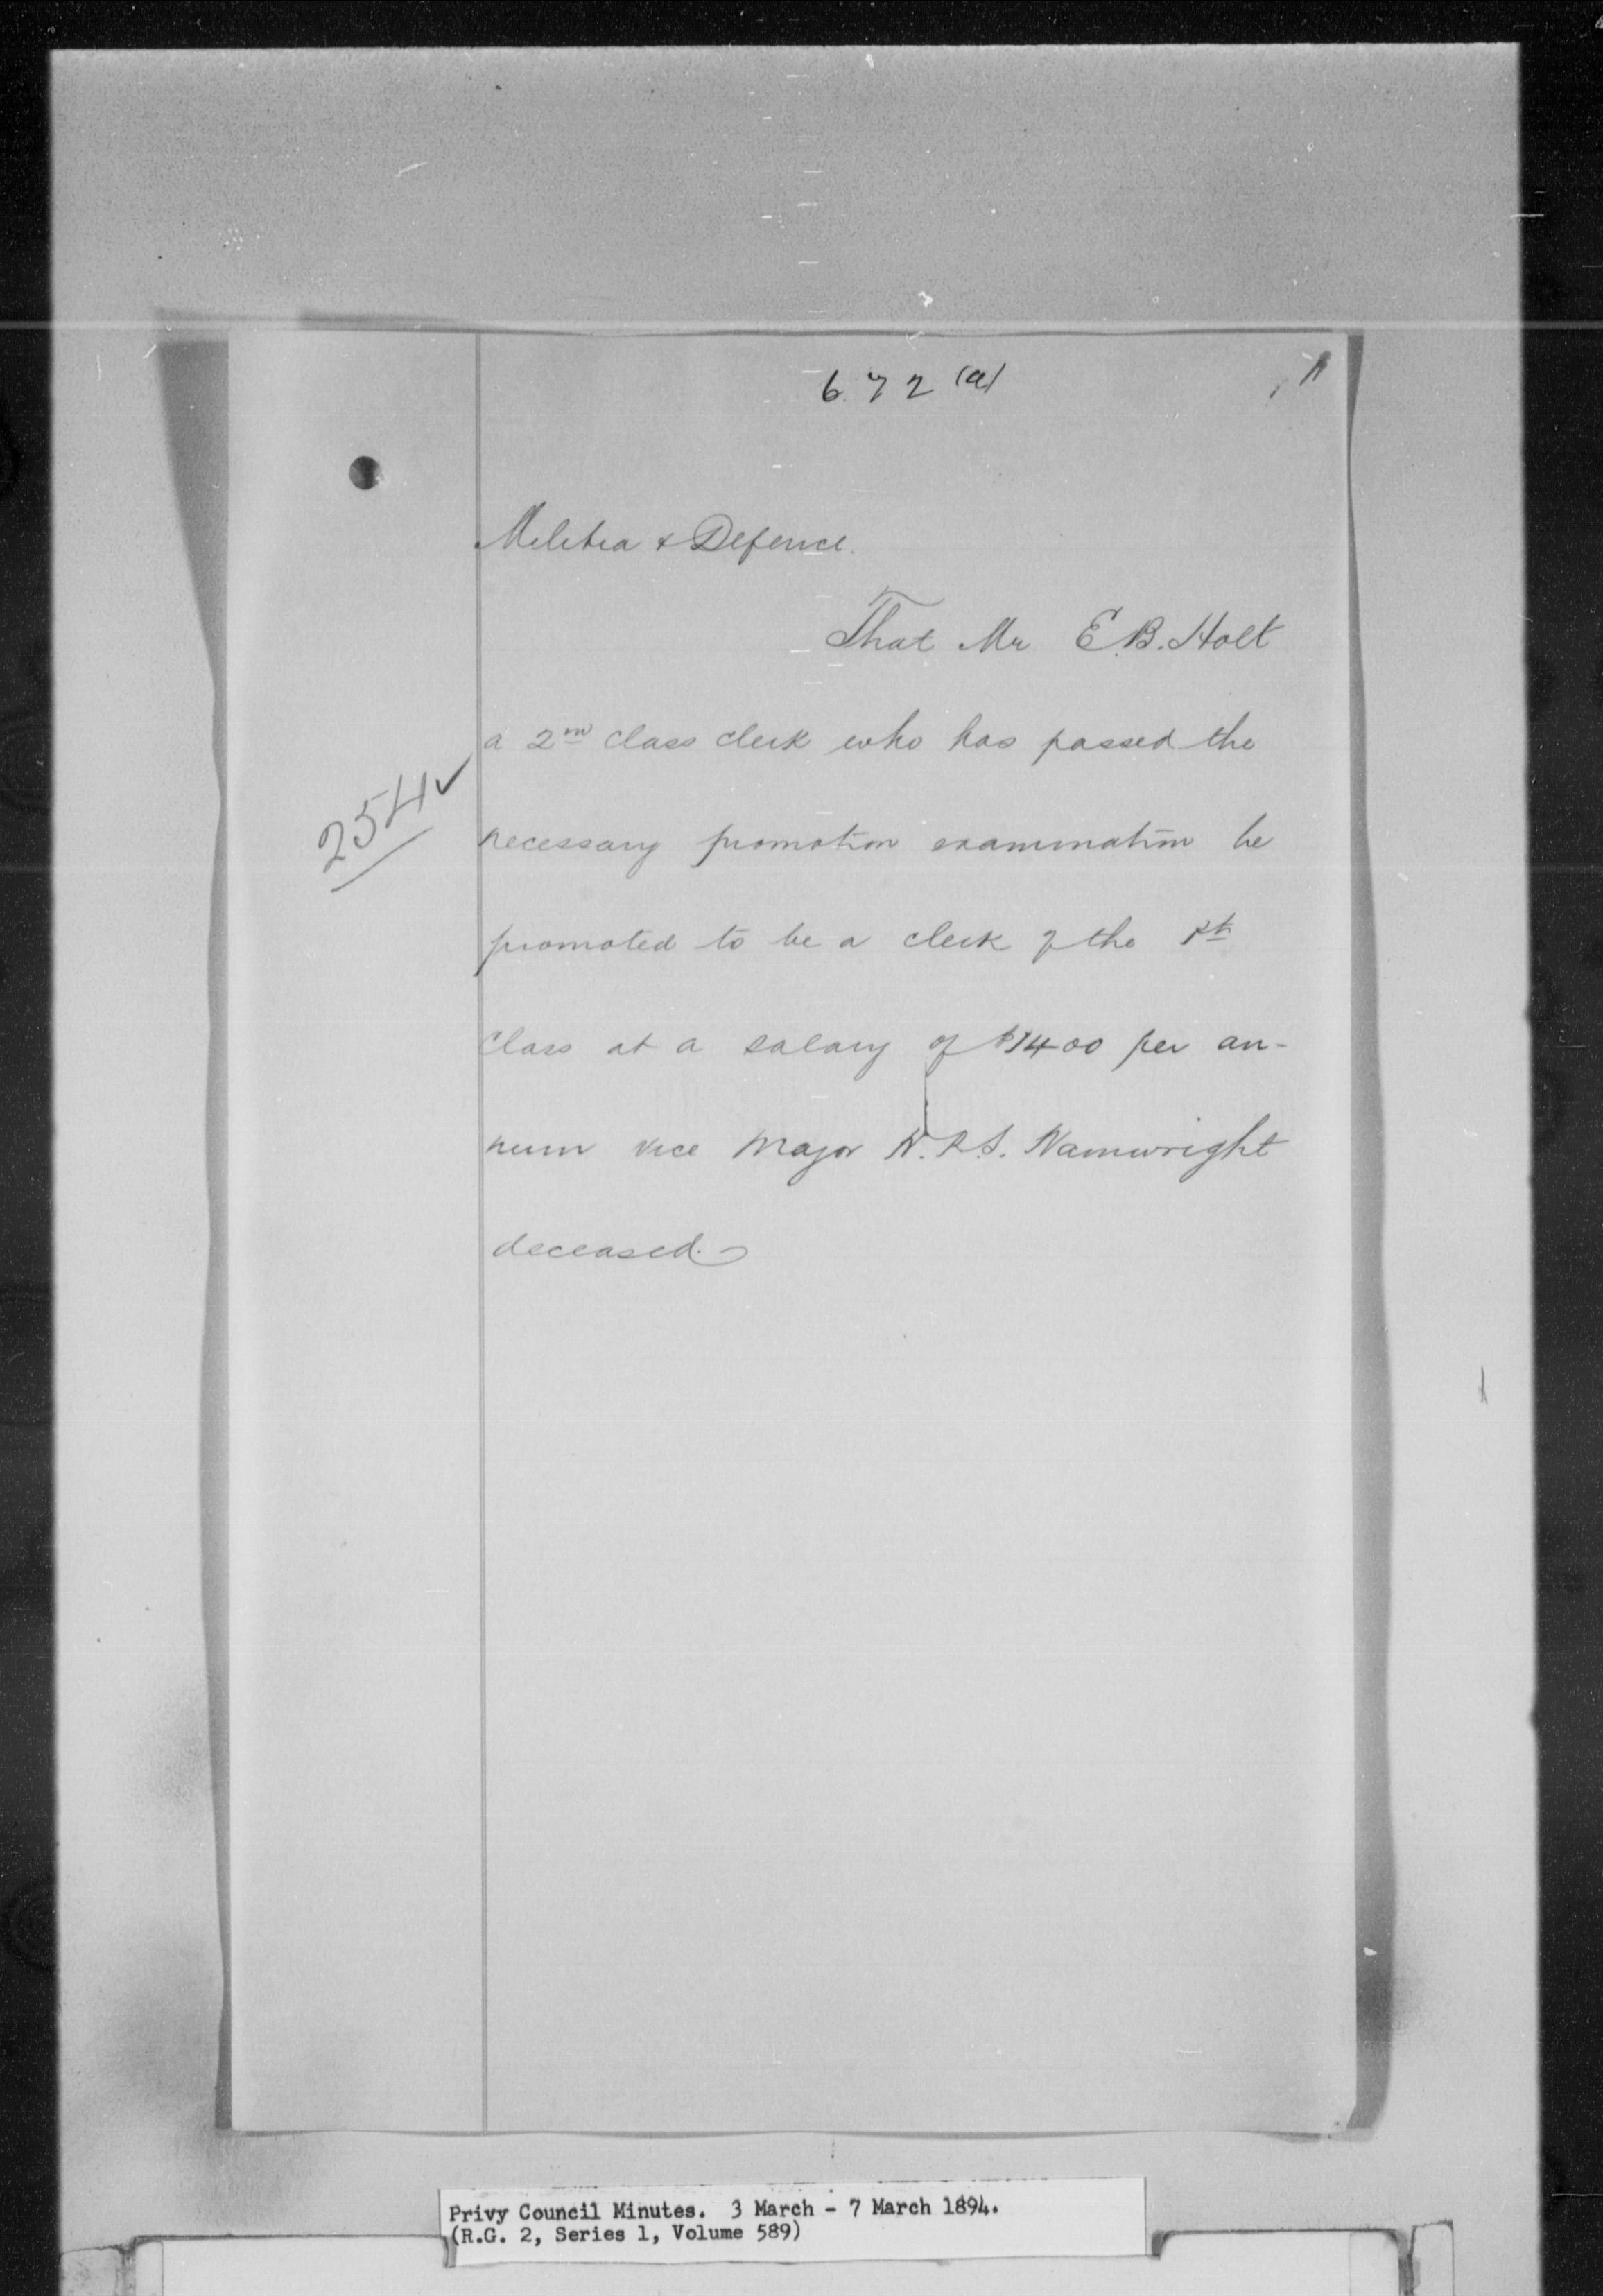 672 (a)
Militia & Defence.
That Mr E.B. Holt
a 2nd class clerk who has passed the
254✓
necessary promotion examination be
promoted to be a clerk of the 1st
class at a salary of $1400 per an-
num vice Major W.R.S. Wainwright
deceased.
Privy Council Minutes. 3 March - 7 March 1894.
(R.G. 2, Series 1, Volume 589)